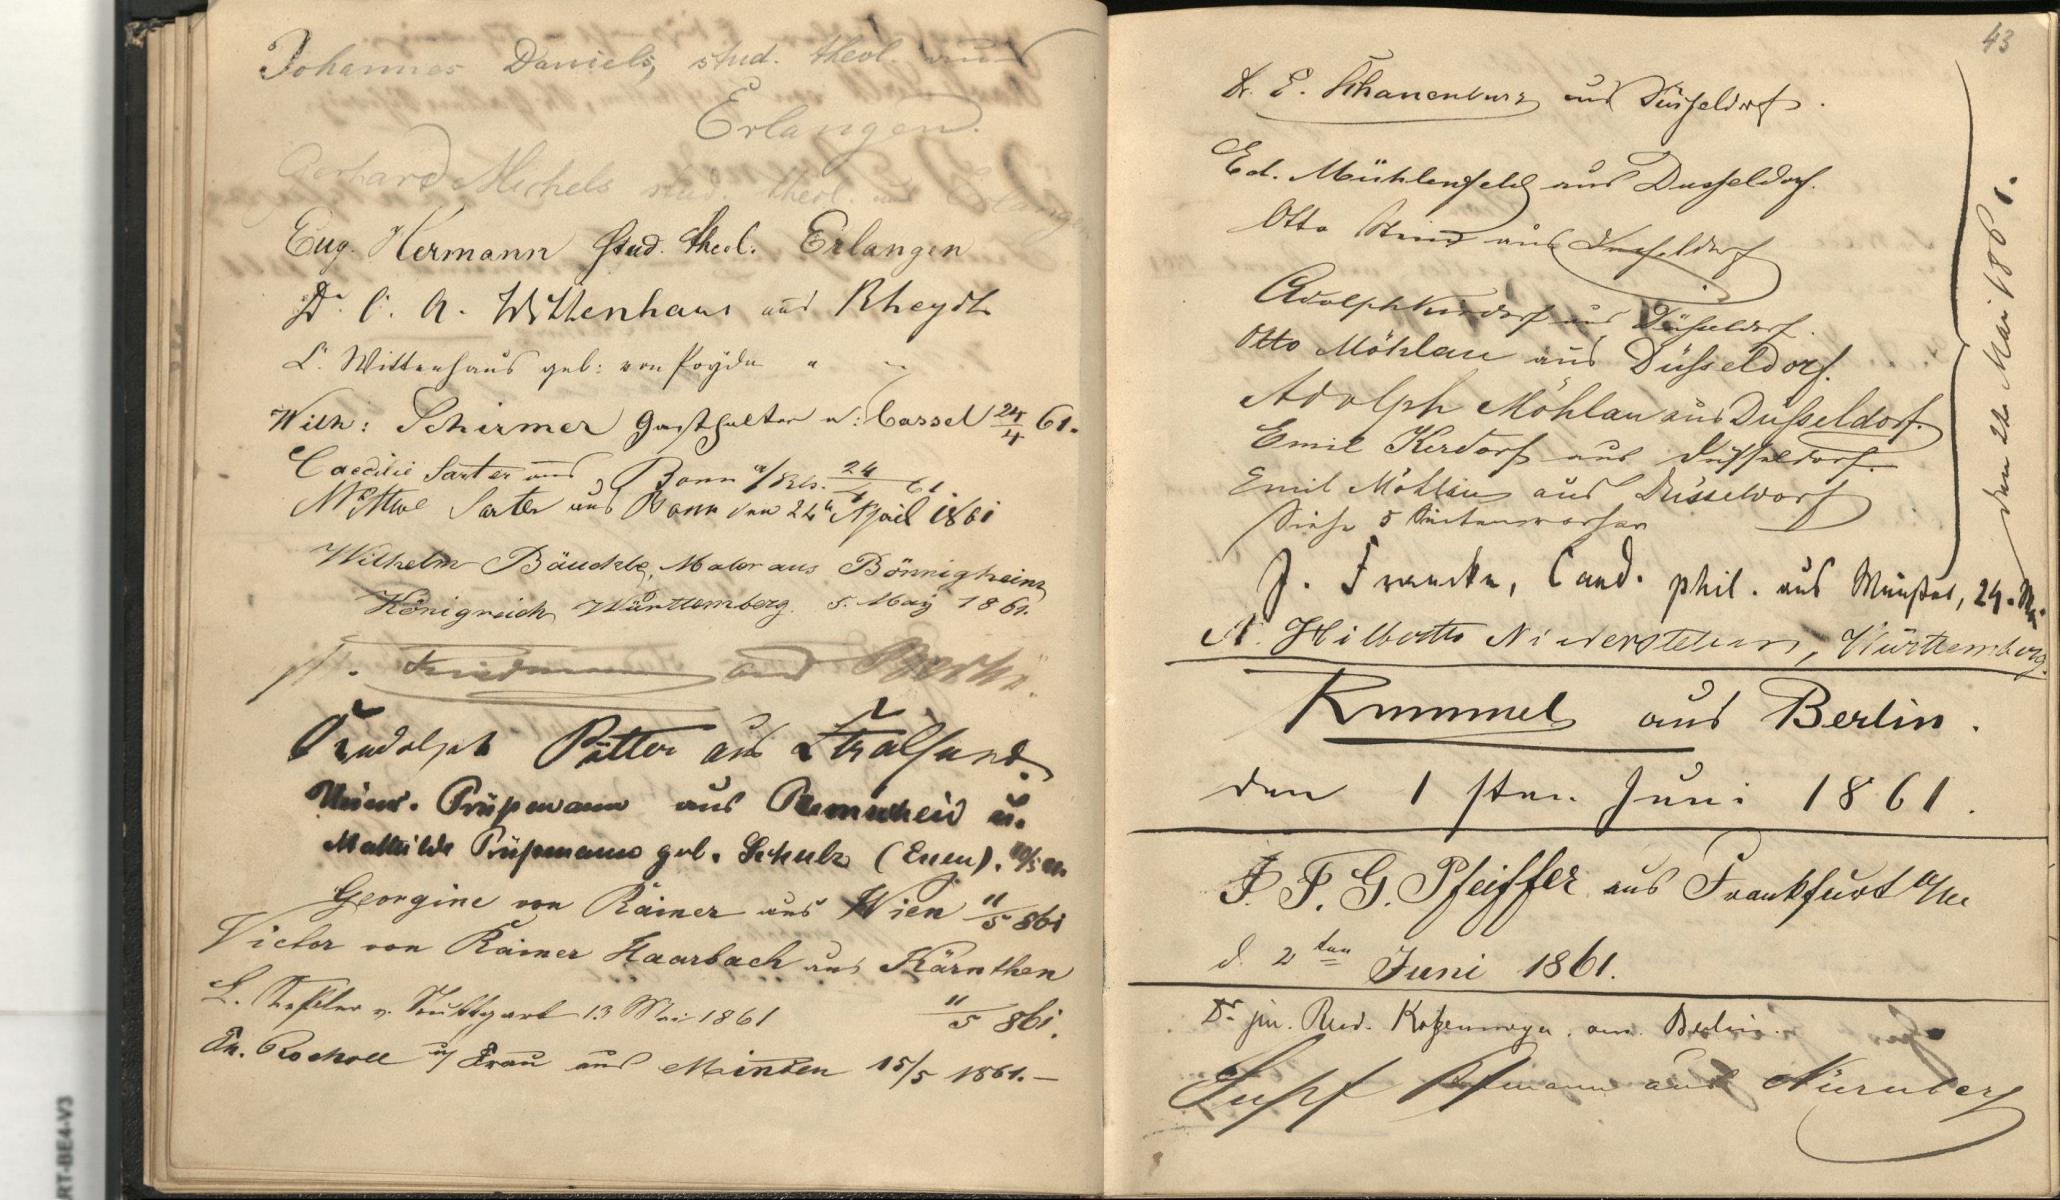 Johannes Daniels, stud. theol. aus
Erlangen.
Gerhard Michels stud. theol. aus Erlangen
Eug. Hermann stud. theol. Erlangen
Dr. C. A. Wittenhaus aus Rheydt
L. Wittenhaus geb: von " "
Wilh: Schirmer Gasthalter v: Cassel 24/4 61.
Caecilie Sarter aus Bonn a/Rh. 24/4 61.
Sarter aus Bonn den 24 April 1861
Wilhelm Bäuchle, Maler aus Bönnigheim
Königreich Württemberg. 5. May 1861.
Friedmann aus
Rudolph Pütter aus Stralsund.
Prüßmann aus Remscheid u.
Mathilde Prüßmann geb. Schulz
Georgine von Rainer aus Wien 11/5 861
Victor von Rainer Haarbach aus Kärnthen
11/5 861.
L. v. Stuttgart 13 Mai 1861
Fr. Rocholl u/ Frau aus Minden 15/5 1861. –
43
Dr. E. Schauenburg aus Düsseldorf.
Ed. Mühlenfeld aus Dusseldorf.
Otto aus Dusseldorf
Adolph Kirdorf aus Düsseldorf.
Otto Möhlau aus Düsseldorf.
Adolph Möhlau aus Düsseldorf.
Emil Kirdorf aus Düsseldorf.
Emil Möhlau aus Düsseldorf
Siehe 5 Seiten vorher
den Mai 1861.
J. Francke, Cand. phil. aus Münster, 24. Mai
Niederstetten, Württemberg.
Rummel aus Berlin.
den 1 sten Juni 1861.
J. F. G. Pfeiffer aus Frankfurt a/M
d. 2ten Juni 1861.
Dr. jur. Rud. aus Berlin.
aus Nürnberg
RT-BE4-V3